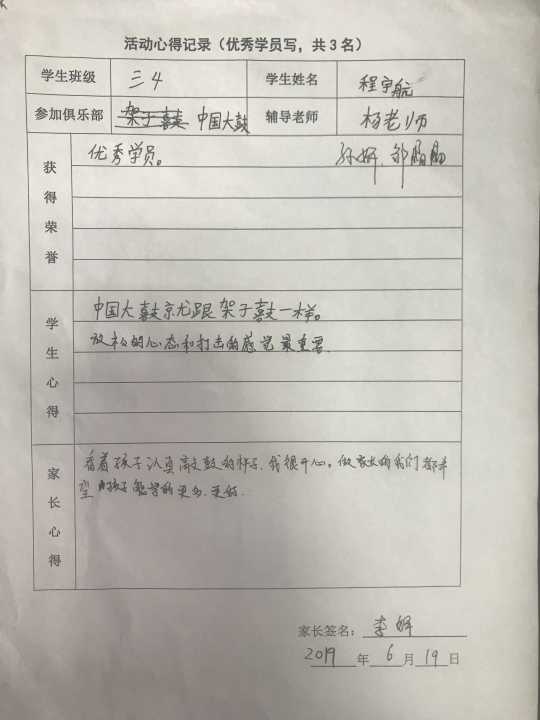 活动心得记录（优秀学员写，共3名）
学生班级 三4 学生姓名 程宇航
参加俱乐部 架子鼓 中国大鼓 辅导老师 杨老师
获得荣誉 优秀学员。
学生心得 中国大鼓京尤跟架子鼓一样。
放松的心态和打击的感觉最重要
家长心得 看着孩子认真敲鼓的样子，我很开心。做家长的我们都希
望孩子能学的更多.更好.
家长签名：李辉
2019年6月19日